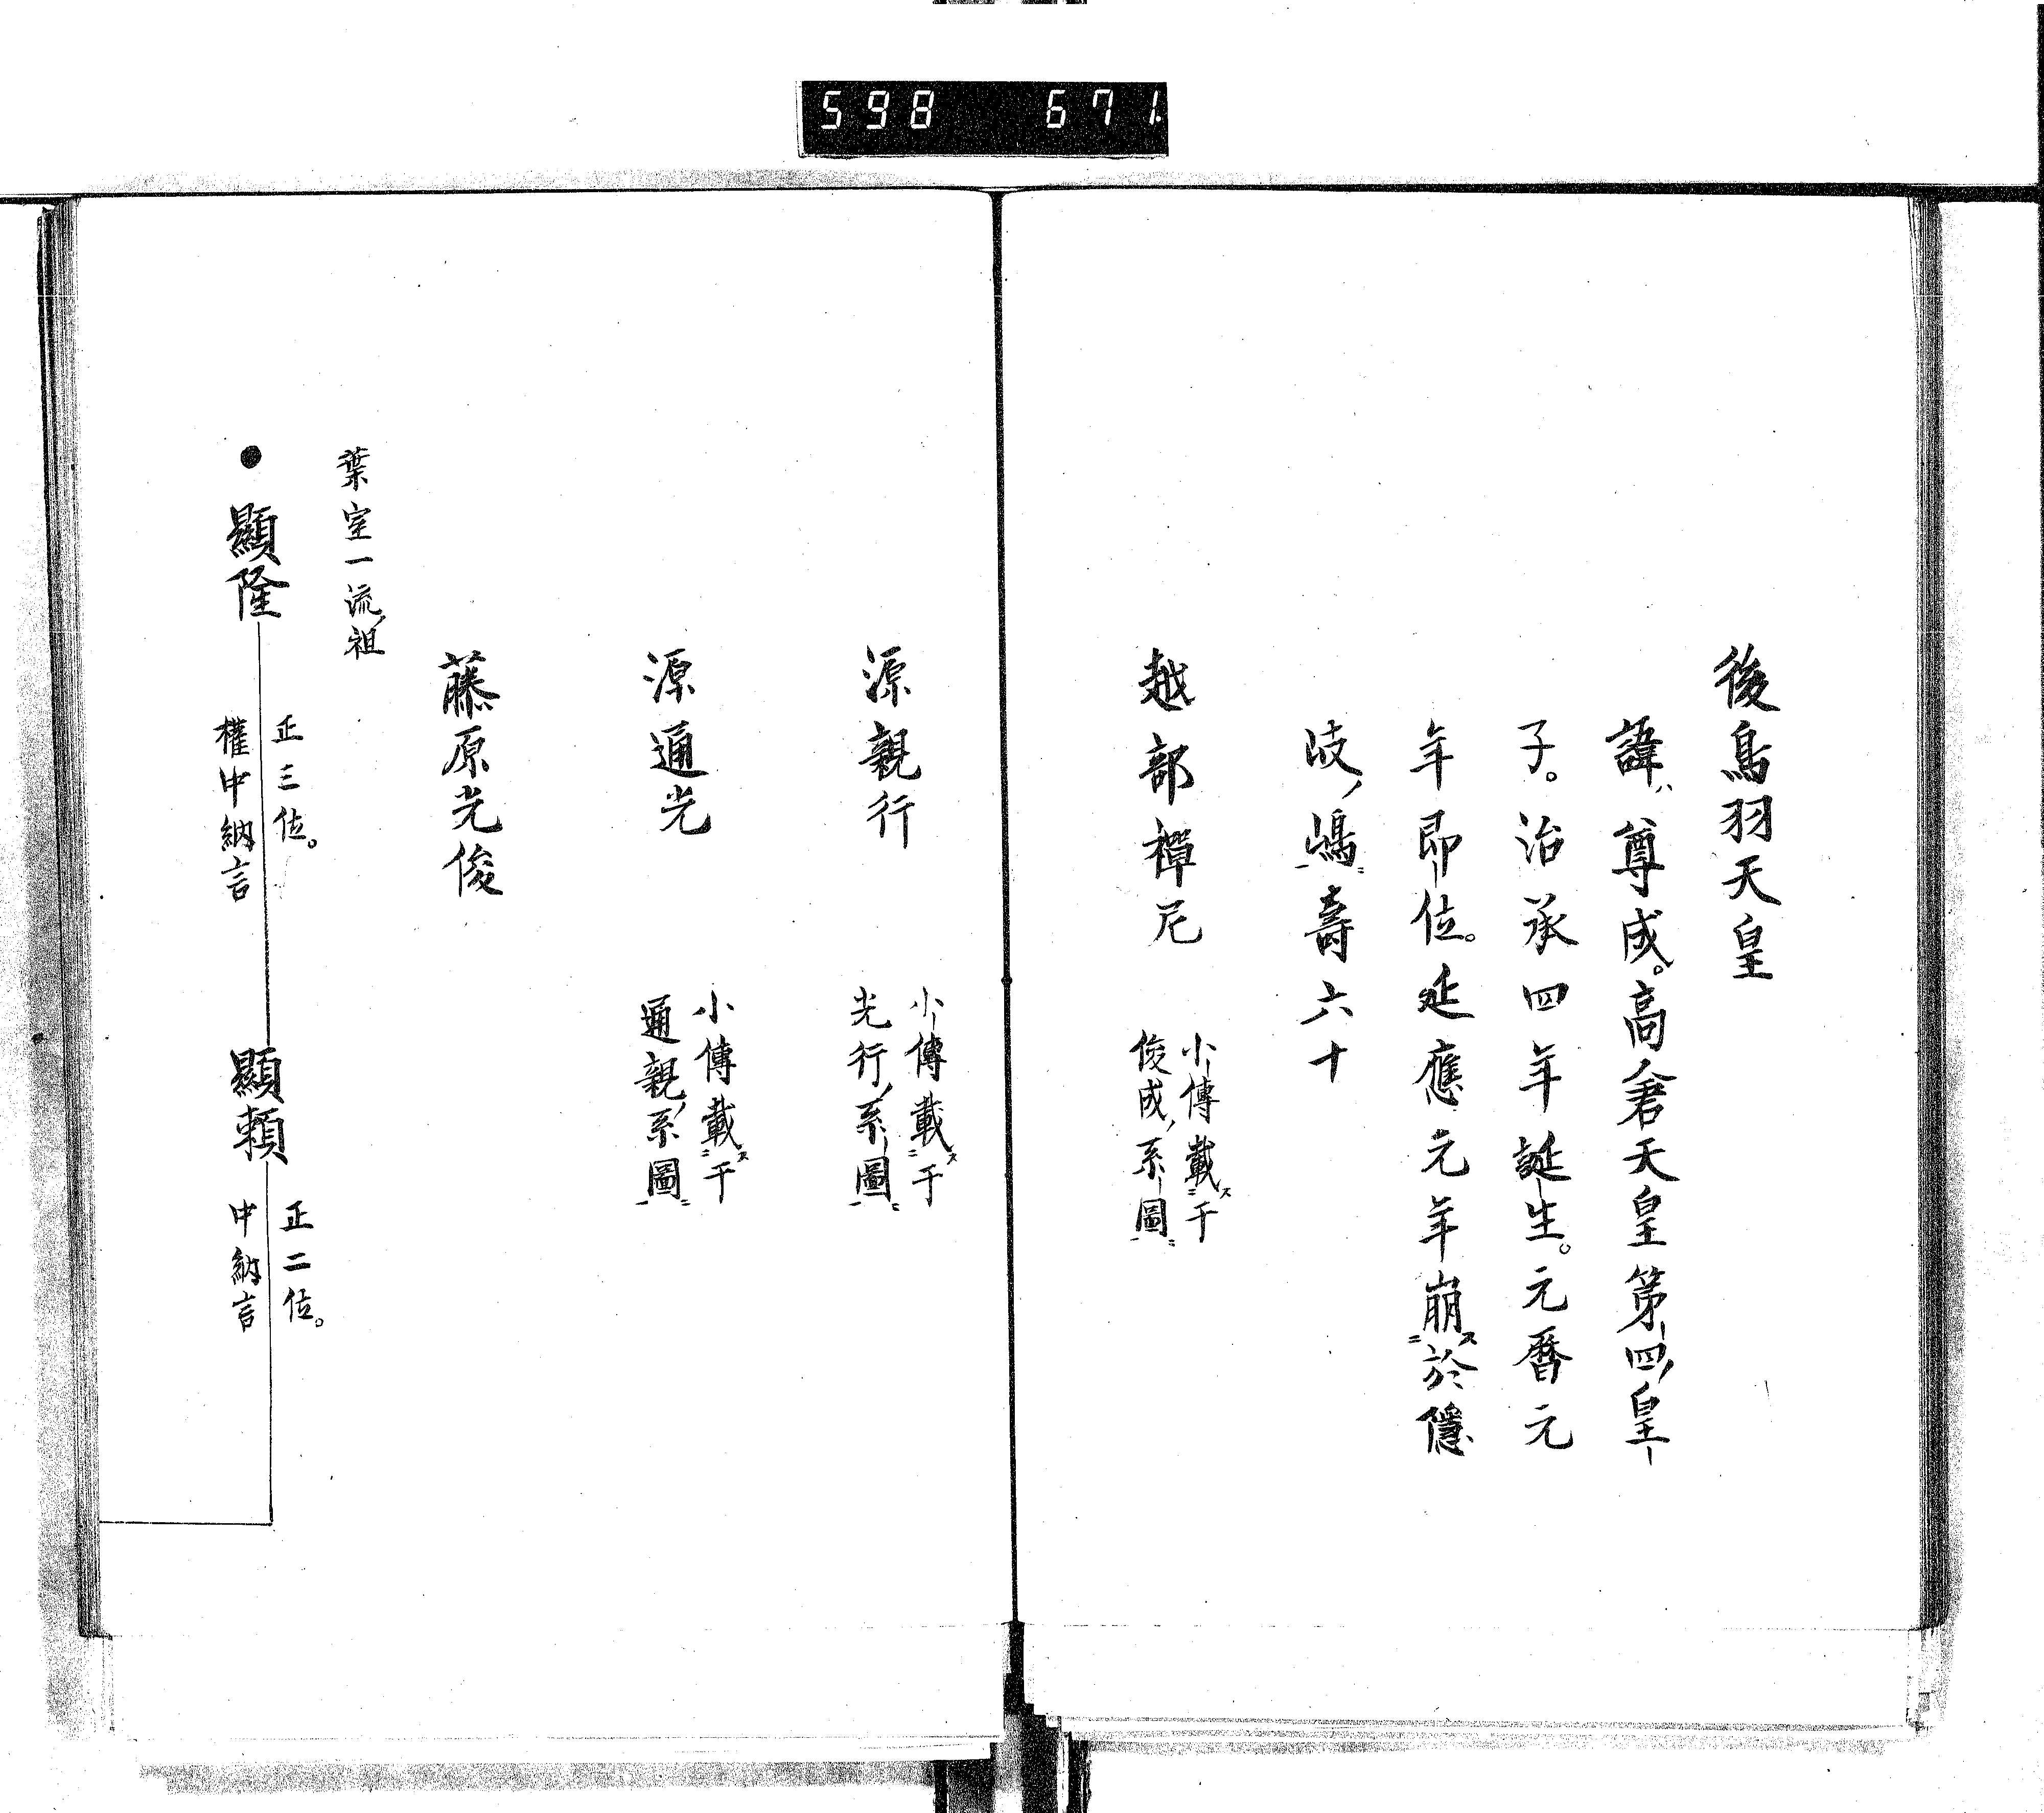 598 671
後鳥羽天皇
諱ハ尊成。高倉天皇第四ノ皇
子。治承四年誕生。元曆元
年即位。延應元年崩ス於隱
岐ノ嶋壽六十
越部禪尼
小傳載ス于
俊成ノ系圖
源親行
小傳載ス于
光行ノ系圖
源通光
小傳載ス于
通親ノ系圖
藤原光俊
葉室一流ノ祖
●顯隆
正三位。
權中納言
顯頼
正二位。
中納言